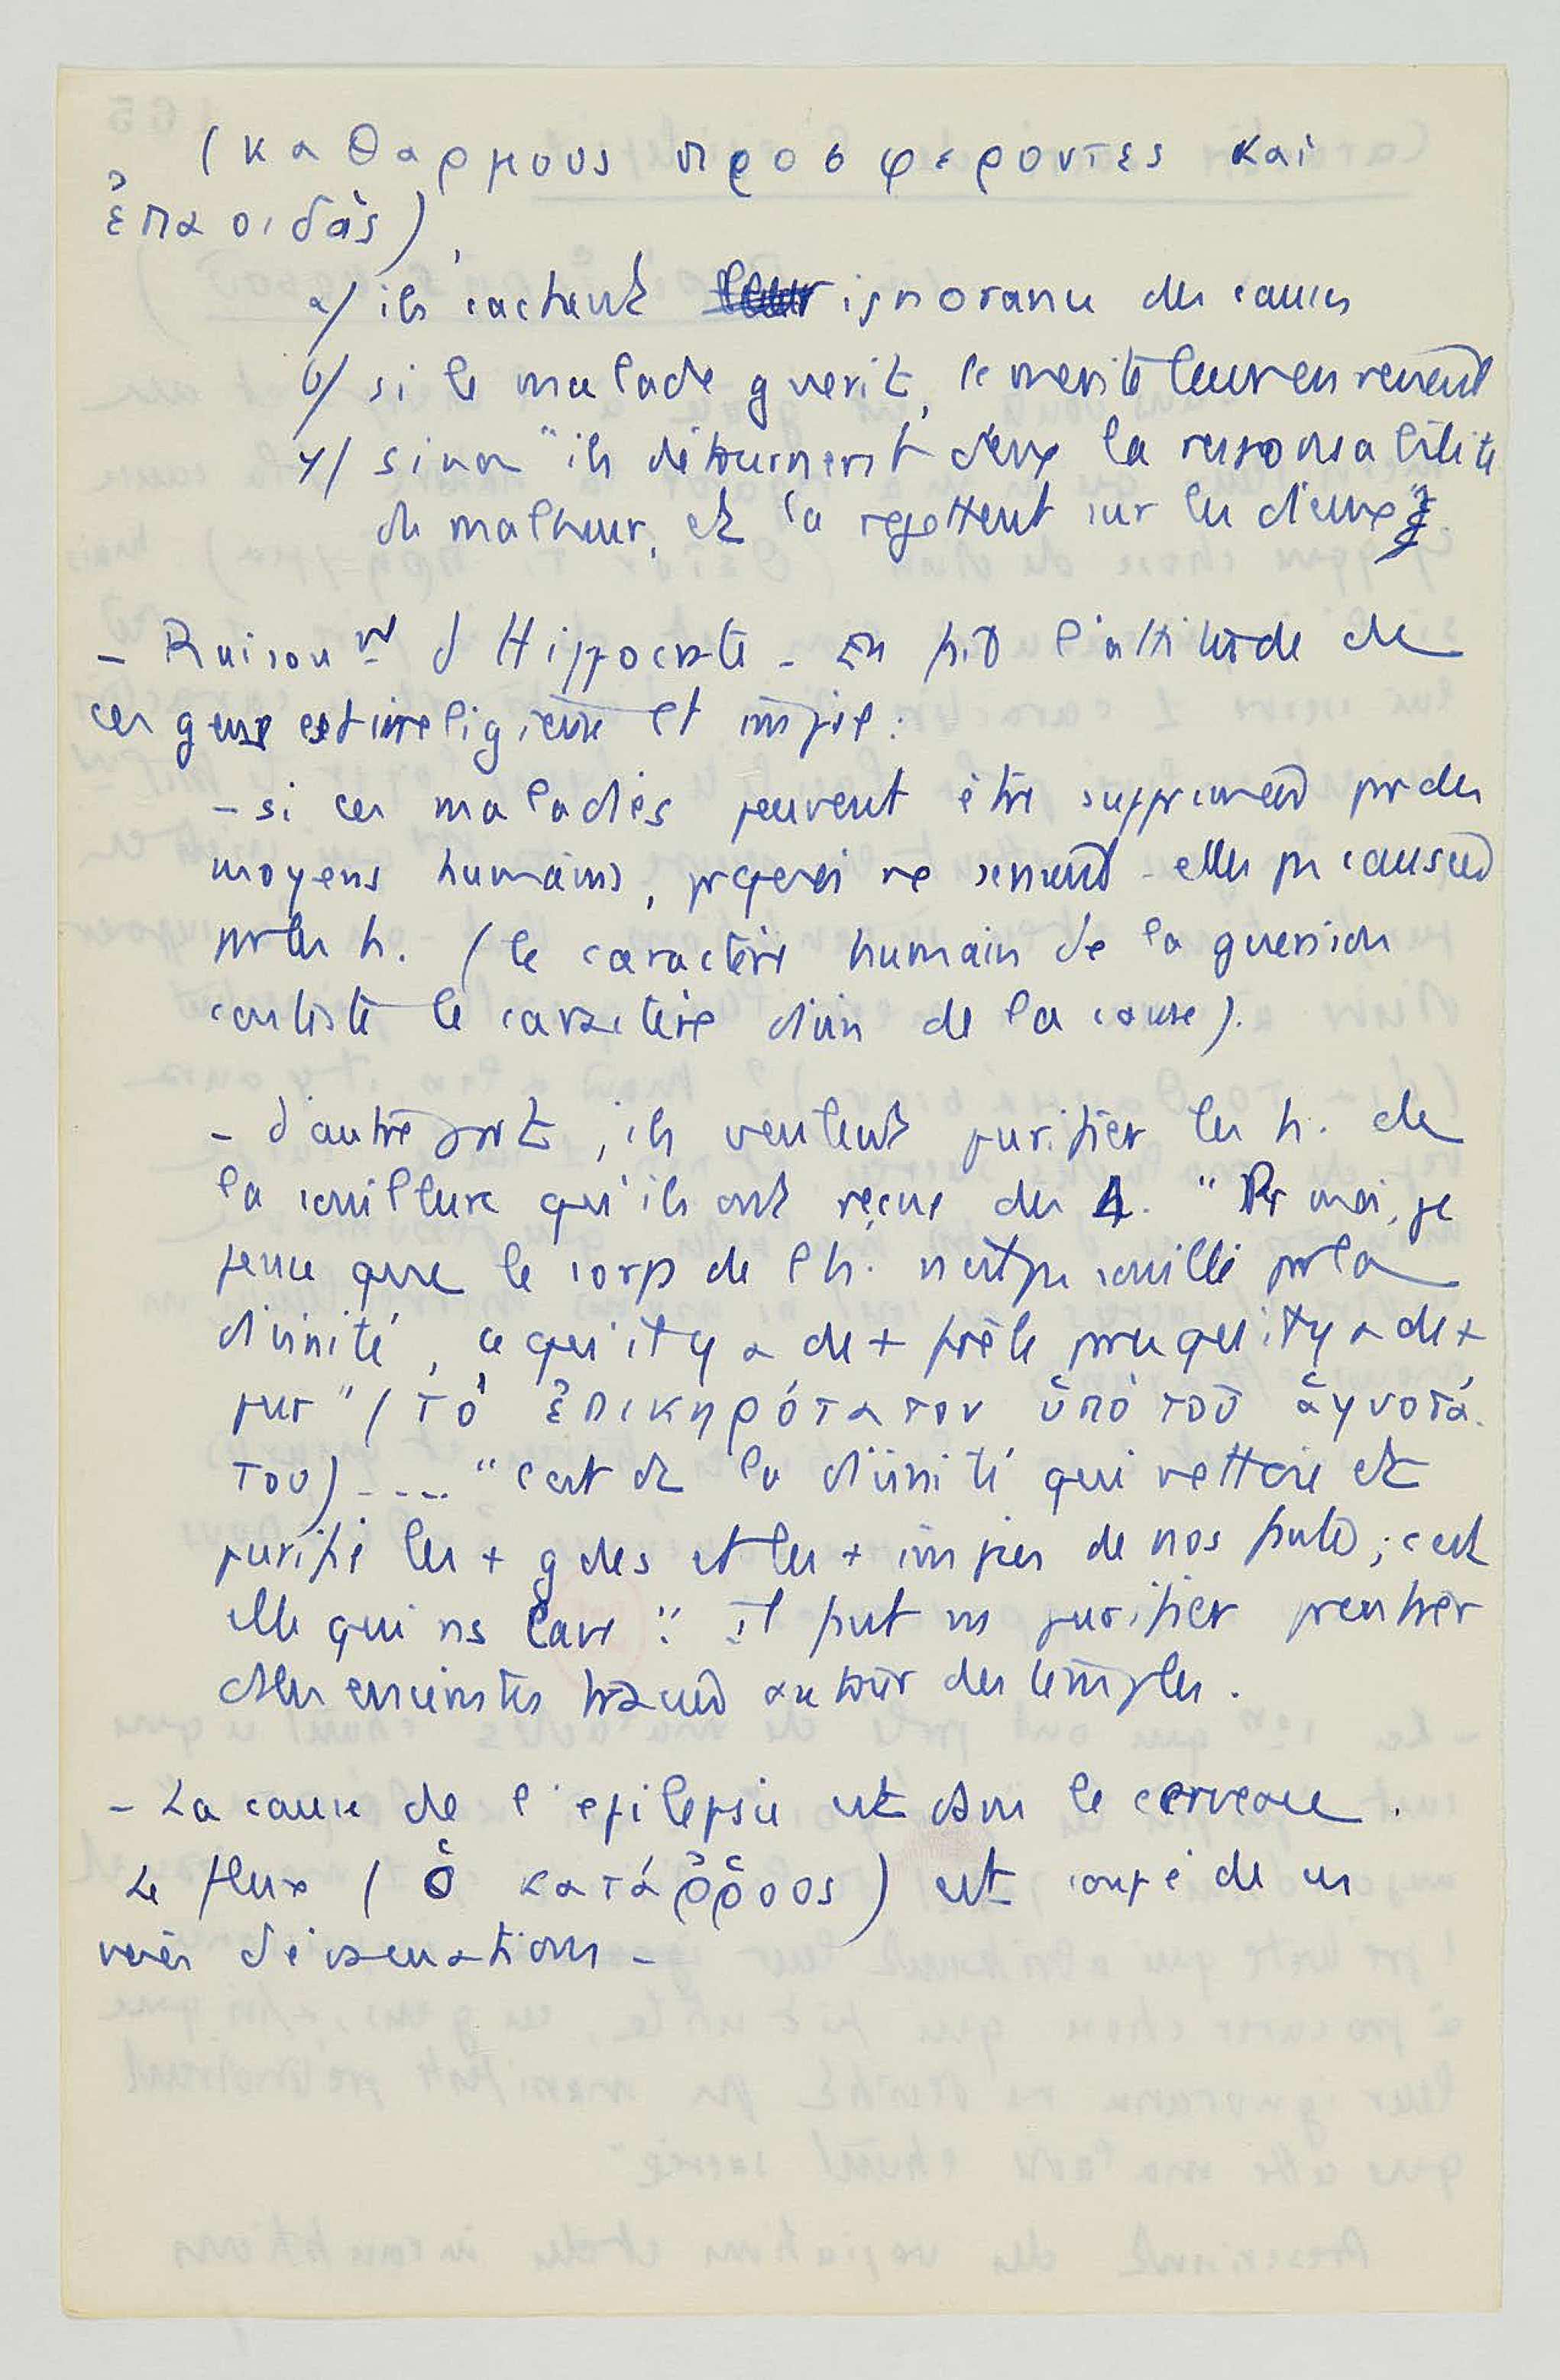 (καθαρμους προσφεροντες καὶ
ἐπαοιδάς)
α/ ils cachent ignorance des causes
β/ si le malade guerit, le merite leur en revient
γ/ sinon "ils détournent d'eux la responsabilité
du malheur, et la rejettent sur les dieux"
- Raisonnt d'Hippocrate - En fait l'attitude de
ces gens est irreligieuse et impie :
- si ces maladies peuvent être supprimées par des
moyens humains, prquoi ne seraient-elles pas causées
par les h. (le caractère humain de la guerison
conteste le caractère divin de la cause).
- d'autre part, ils veulent purifier les h. de
la souillure qu'ils ont reçue des Δ. "Pr moi, je
pense que le corps de l'h. n'est pas souillé par la
divinité, ce qu'il y a de + frêle par ce qu'il y a de +
pur" (τὸ ἐπικηρότατον ὑπὸ τοῦ ἁγνοτά-
του) .... "c'est dc la divinité qui nettoie et
purifie les + gdes et les + impies de nos fautes ; c'est
elle qui ns lave". Il faut ns purifier pr entrer
ds les enceintes tracées autour des temples.
- La cause de l'epilepsie est dans le cerveau.
Le flux (ὁ κατάῤῥοος) est coupé de ses
voies d'évacuations -